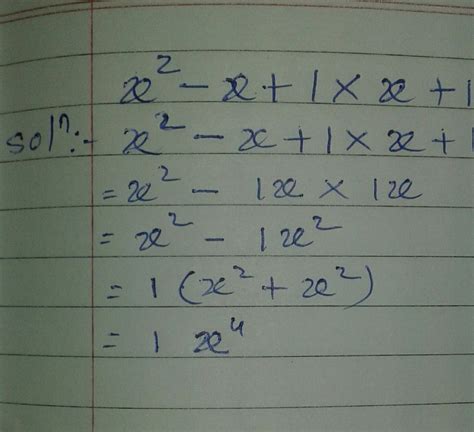 x² - x + 1 × x + 1
solⁿ:- x² - x + 1 × x + 1
= x² - 1x × 1x
= x² - 1x²
= 1 (x² + x²)
= 1 x⁴